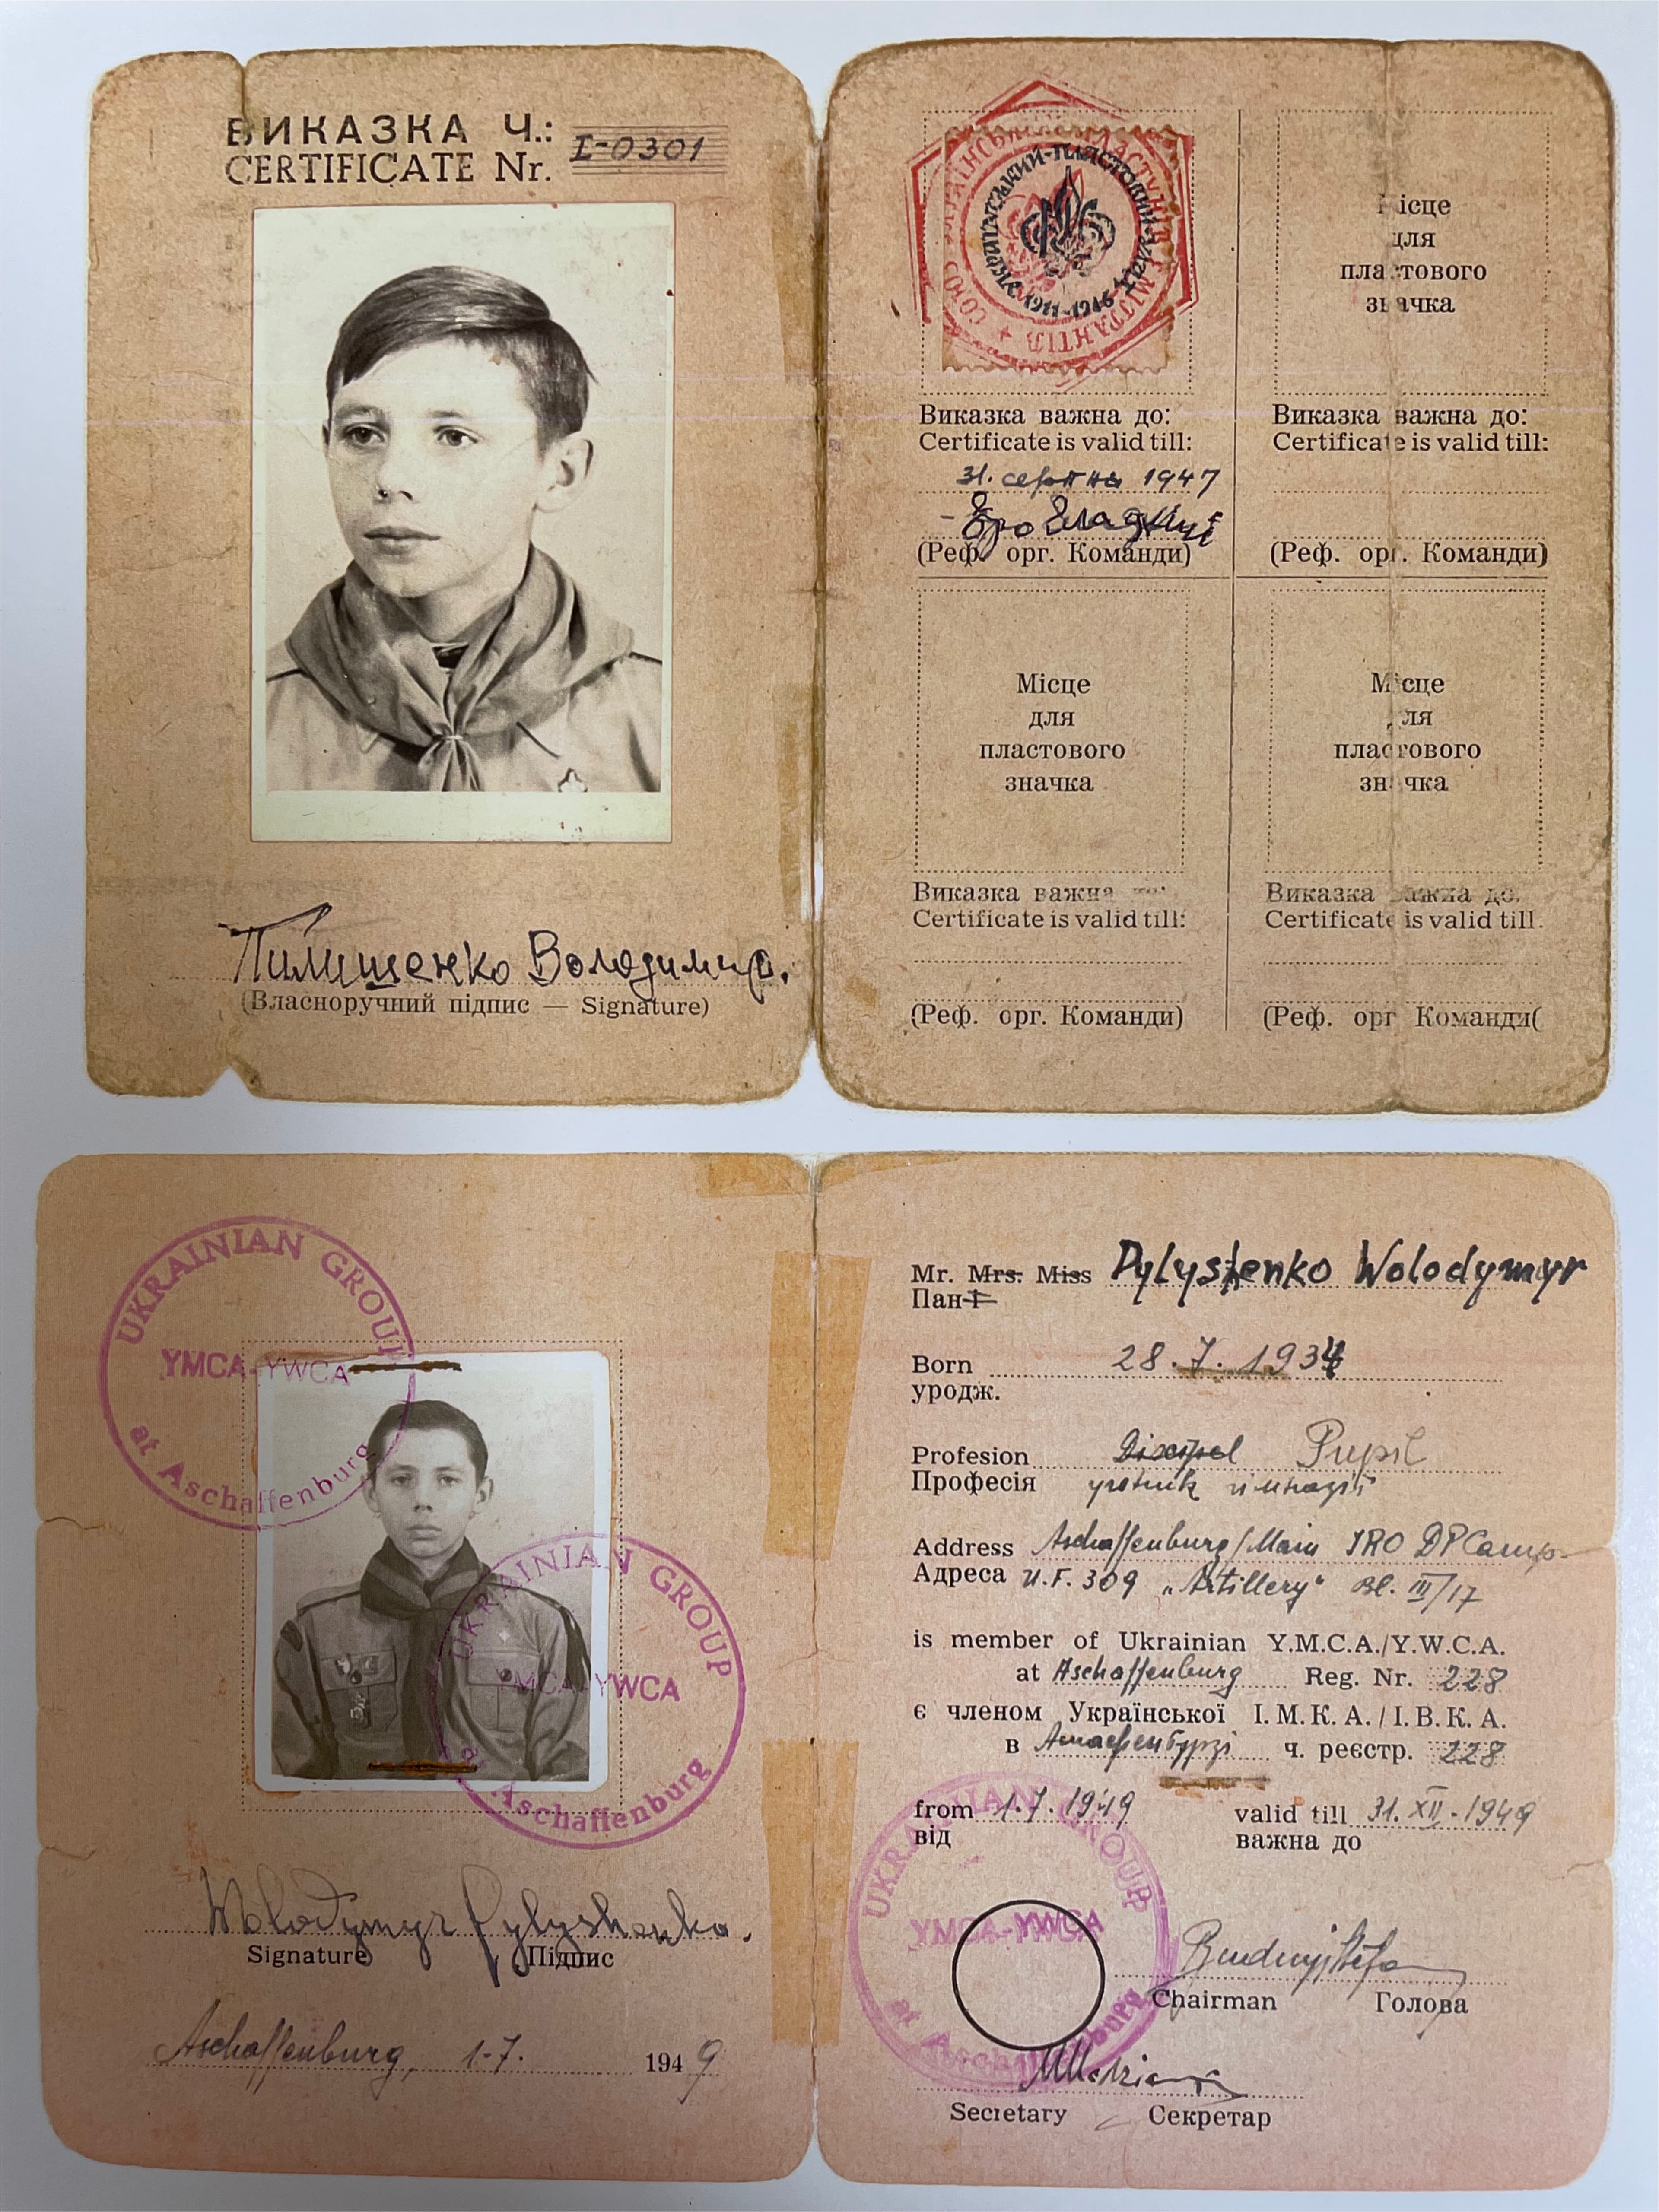 ВИКАЗКА Ч.:
CERTIFICATE Nr. I-0301
Пилишенко Володимир.
(Власноручний підпис — Signature)
СОЮЗ УКРАЇНСЬКИХ ПЛАСТУНІВ ЕМІГРАНТІВ
УКРАЇНСЬКИЙ-ПЛАСТОВИЙ-УЛАД
1911-1946
Виказка важна до:
Certificate is valid till:
31. серпня 1947
(Реф. орг. Команди)
Місце
для
пластового
значка
Виказка важна до:
Certificate is valid till:
(Реф. орг. Команди)
Місце
для
пластового
значка
Виказка важна до:
Certificate is valid till:
(Реф. орг. Команди)
Місце
для
пластового
значка
Виказка важна до.
Certificate is valid till.
(Реф. орг Команди(
UKRAINIAN GROUP
YMCA-YWCA
at Aschaffenburg
UKRAINIAN GROUP
YMCA-YWCA
at Aschaffenburg
Wolodymyr Pylyshenko.
Signature Підпис
Aschaffenburg, 1-7. 1949
Mr. Mrs. Miss Pylyshenko Wolodymyr
Пан-і
Born 28.7.1934
уродж.
Profesion Pupil
Професія учень гімназії
Address Aschaffenburg/Main IRO DP Camp
Адреса U.F. 309 „Artillery“ Bl. III/17
is member of Ukrainian Y.M.C.A./Y.W.C.A.
at Aschaffenburg Reg. Nr. 228
є членом Української І.М.К.А./І.В.К.А.
в Ашафенбурзі ч. реєстр. 228
from 1.7.1949 valid till 31.XII.1949
від важна до
UKRAINIAN GROUP
YMCA-YWCA
at Aschaffenburg
Chairman Голова
Secretary Секретар